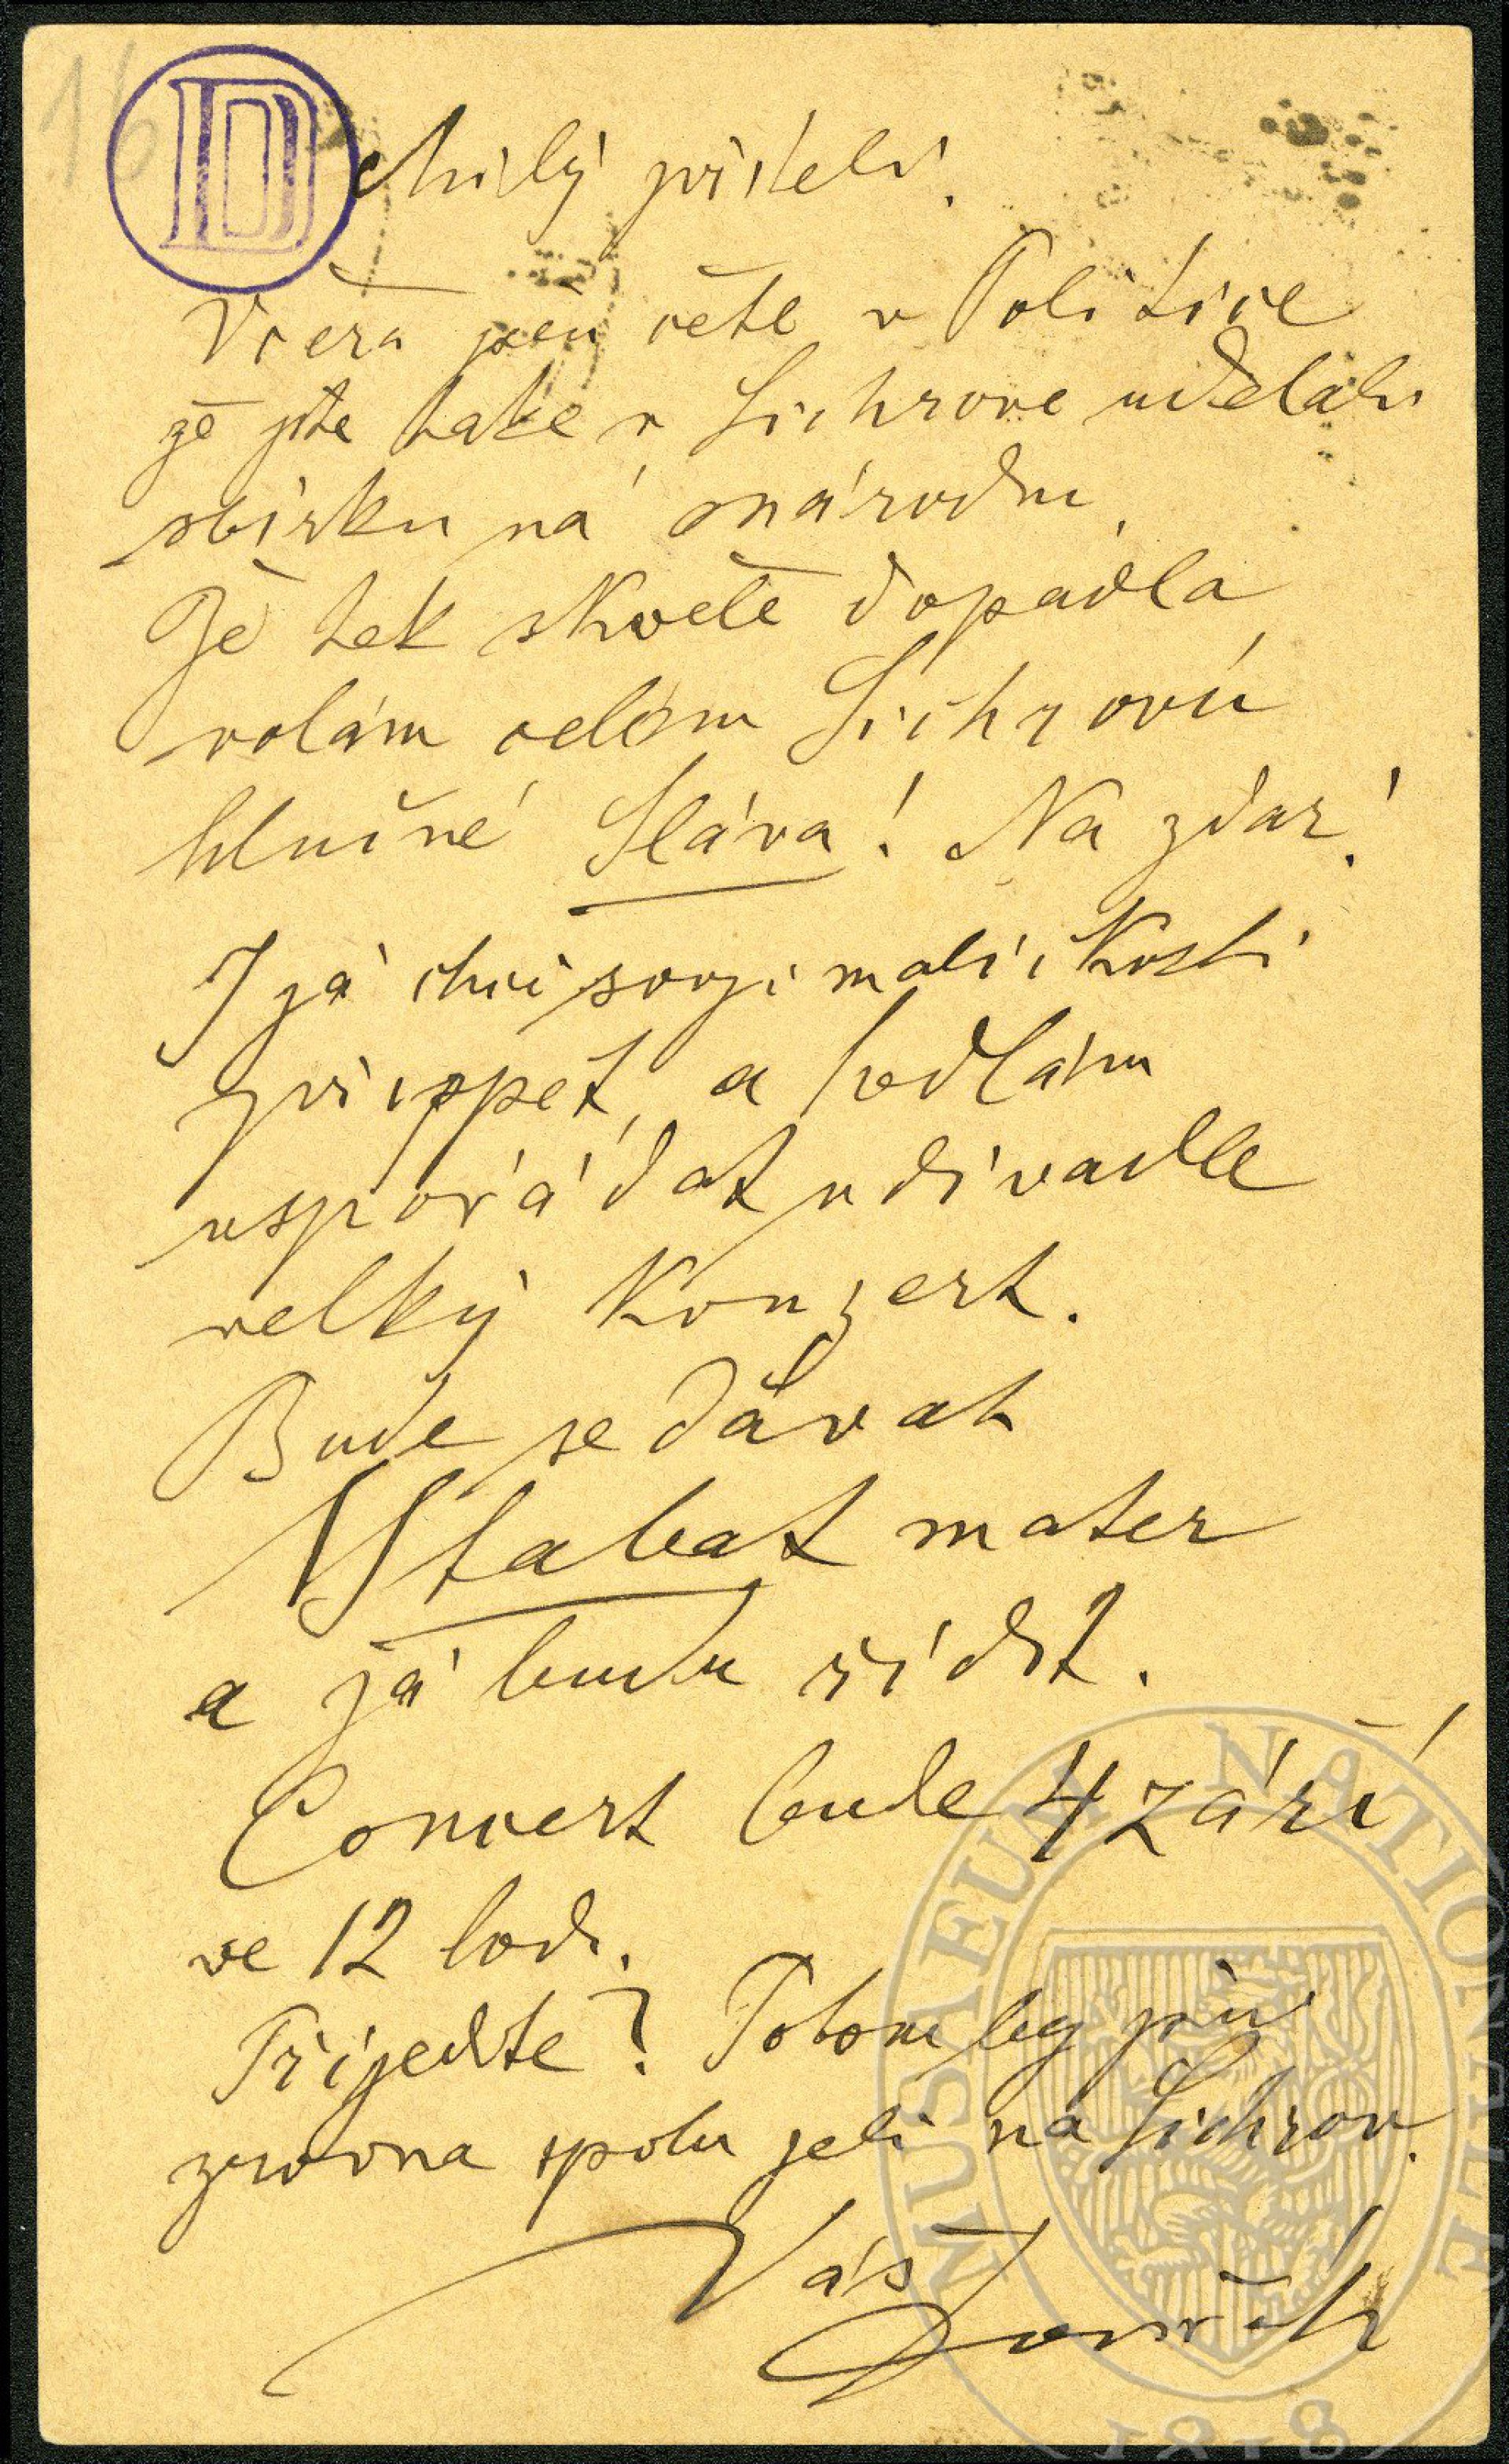 16
D
Milý příteli.
Včera jsem četl v Politice
že jste také v Sichrově udělali
sbírku na národní
Že tak skvěle dopadla
volám celém Sichrovu
hlučné Sláva! Na zdar!
I já chci svojí maličkostí
přispět, a hodlám
uspořádat v divadle
velký Konzert.
Bude se dávat
Stabat mater
a já budu řídit.
Concert bude 4 září
ve 12 hod.
Přijedete? Potom by
zrovna spolu jeli na Sichrov.
Váš
Dvořák
MUSAEUM NATIONALE
1818